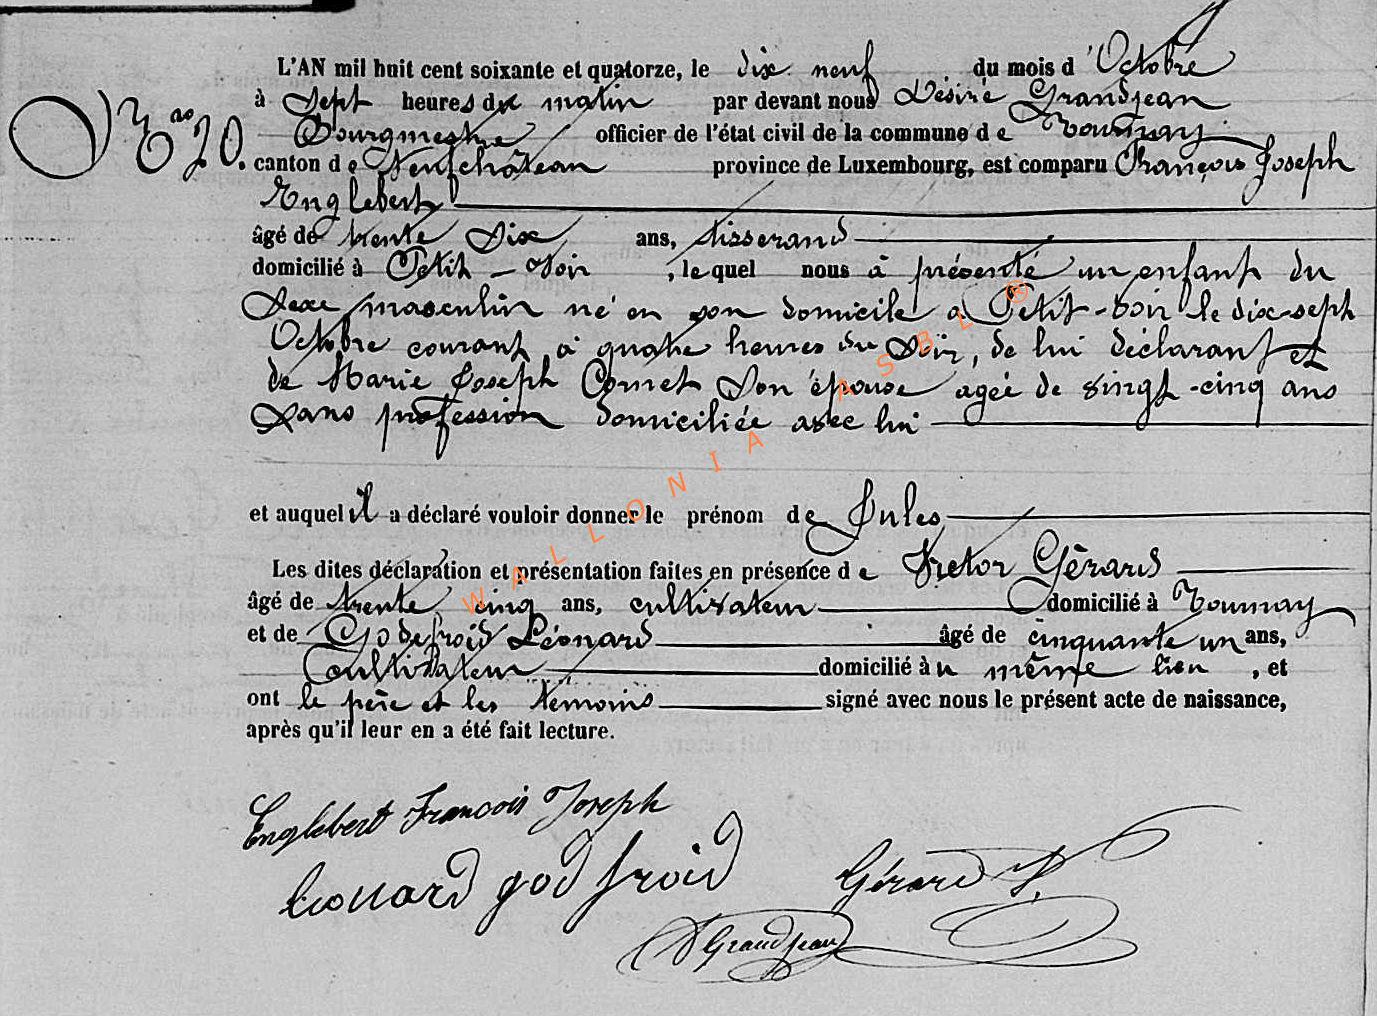 L'AN mil huit cent soixante et quatorze, le dix neuf du mois d'Octobre
à Sept heures du matin par devant nous Désiré Grandjean
N.ro 20. Bourgmestre officier de l'état civil de la commune de Tournay
canton de Neufchâteau province de Luxembourg, est comparu François Joseph
Englebert
âgé de trente Six ans, tisserand
domicilié à Petit-Voir, lequel nous a présenté un enfant du
Sexe masculin né en son domicile à Petit-Voir le dix-sept
Octobre courant à quatre heures du Soir, de lui déclarant et
de Marie Joseph Cornet Son épouse agée de vingt-cinq ans
Sans profession domiciliée avec lui
et auquel il a déclaré vouloir donner le prénom de Jules
Les dites déclaration et présentation faites en présence de Victor Gérard
âgé de trente cinq ans, cultivateur domicilié à Tournay
et de Godefroid Léonard âgé de cinquante un ans,
Cultivateur domicilié au même lieu, et
ont le père et les témoins signé avec nous le présent acte de naissance,
après qu'il leur en a été fait lecture.
Englebert François Joseph
Léonard godfroid Gérard V.
D Grandjean
WALLONIA ASBL ®